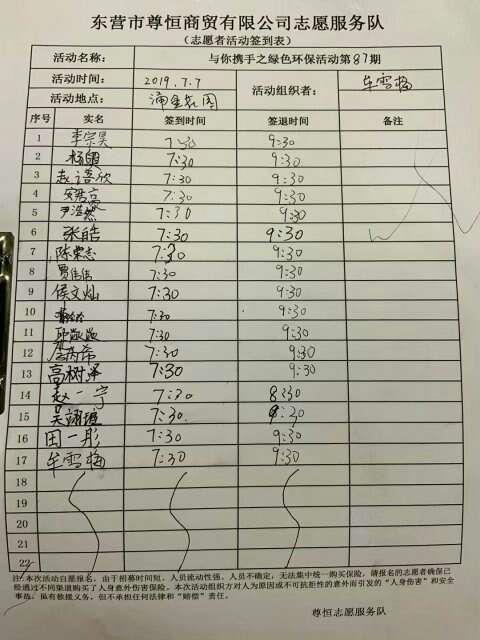 东营市尊恒商贸有限公司志愿服务队
（志愿者活动签到表）
活动名称： 与你携手之绿色环保活动第87期
活动时间： 2019.7.7 活动组织者： 牟雪梅
活动地点： 蒲金花园
序号 实名 签到时间 签退时间 备注
1 李宗昊 7:30 9:30
2 杨 7:30 9:30
3 赵语欣 7:30 9:30
4 7:30 9:30
5 尹浩然 7:30 9:30
6 张皓 7:30 9:30
7 陈荣志 7:30 9:30
8 贾伟伟 7:30 9:30
9 侯文灿 7:30 9:30
10 7:30 9:30
11 7:30 9:30
12 7:30 9:30
13 高树泽 7:30 9:30
14 赵一宁 7:30 8:30
15 吴 7:30 9:30
16 田一彤 7:30 9:30
17 牟雪梅 7:30 9:30
18
19
20
21
22
注:本次活动自愿报名，由于招募时间短，人员流动性强，人员不确定，无法集中统一购买保险，请报名的志愿者确保已
经通过不同渠道购买了人身意外伤害保险。本次活动组织方对人为原因或不可抗拒性的意外而引发的“人身伤害”和安全
事故，虽有救援义务，但不承担任何法律和“赔偿”责任。
尊恒志愿服务队